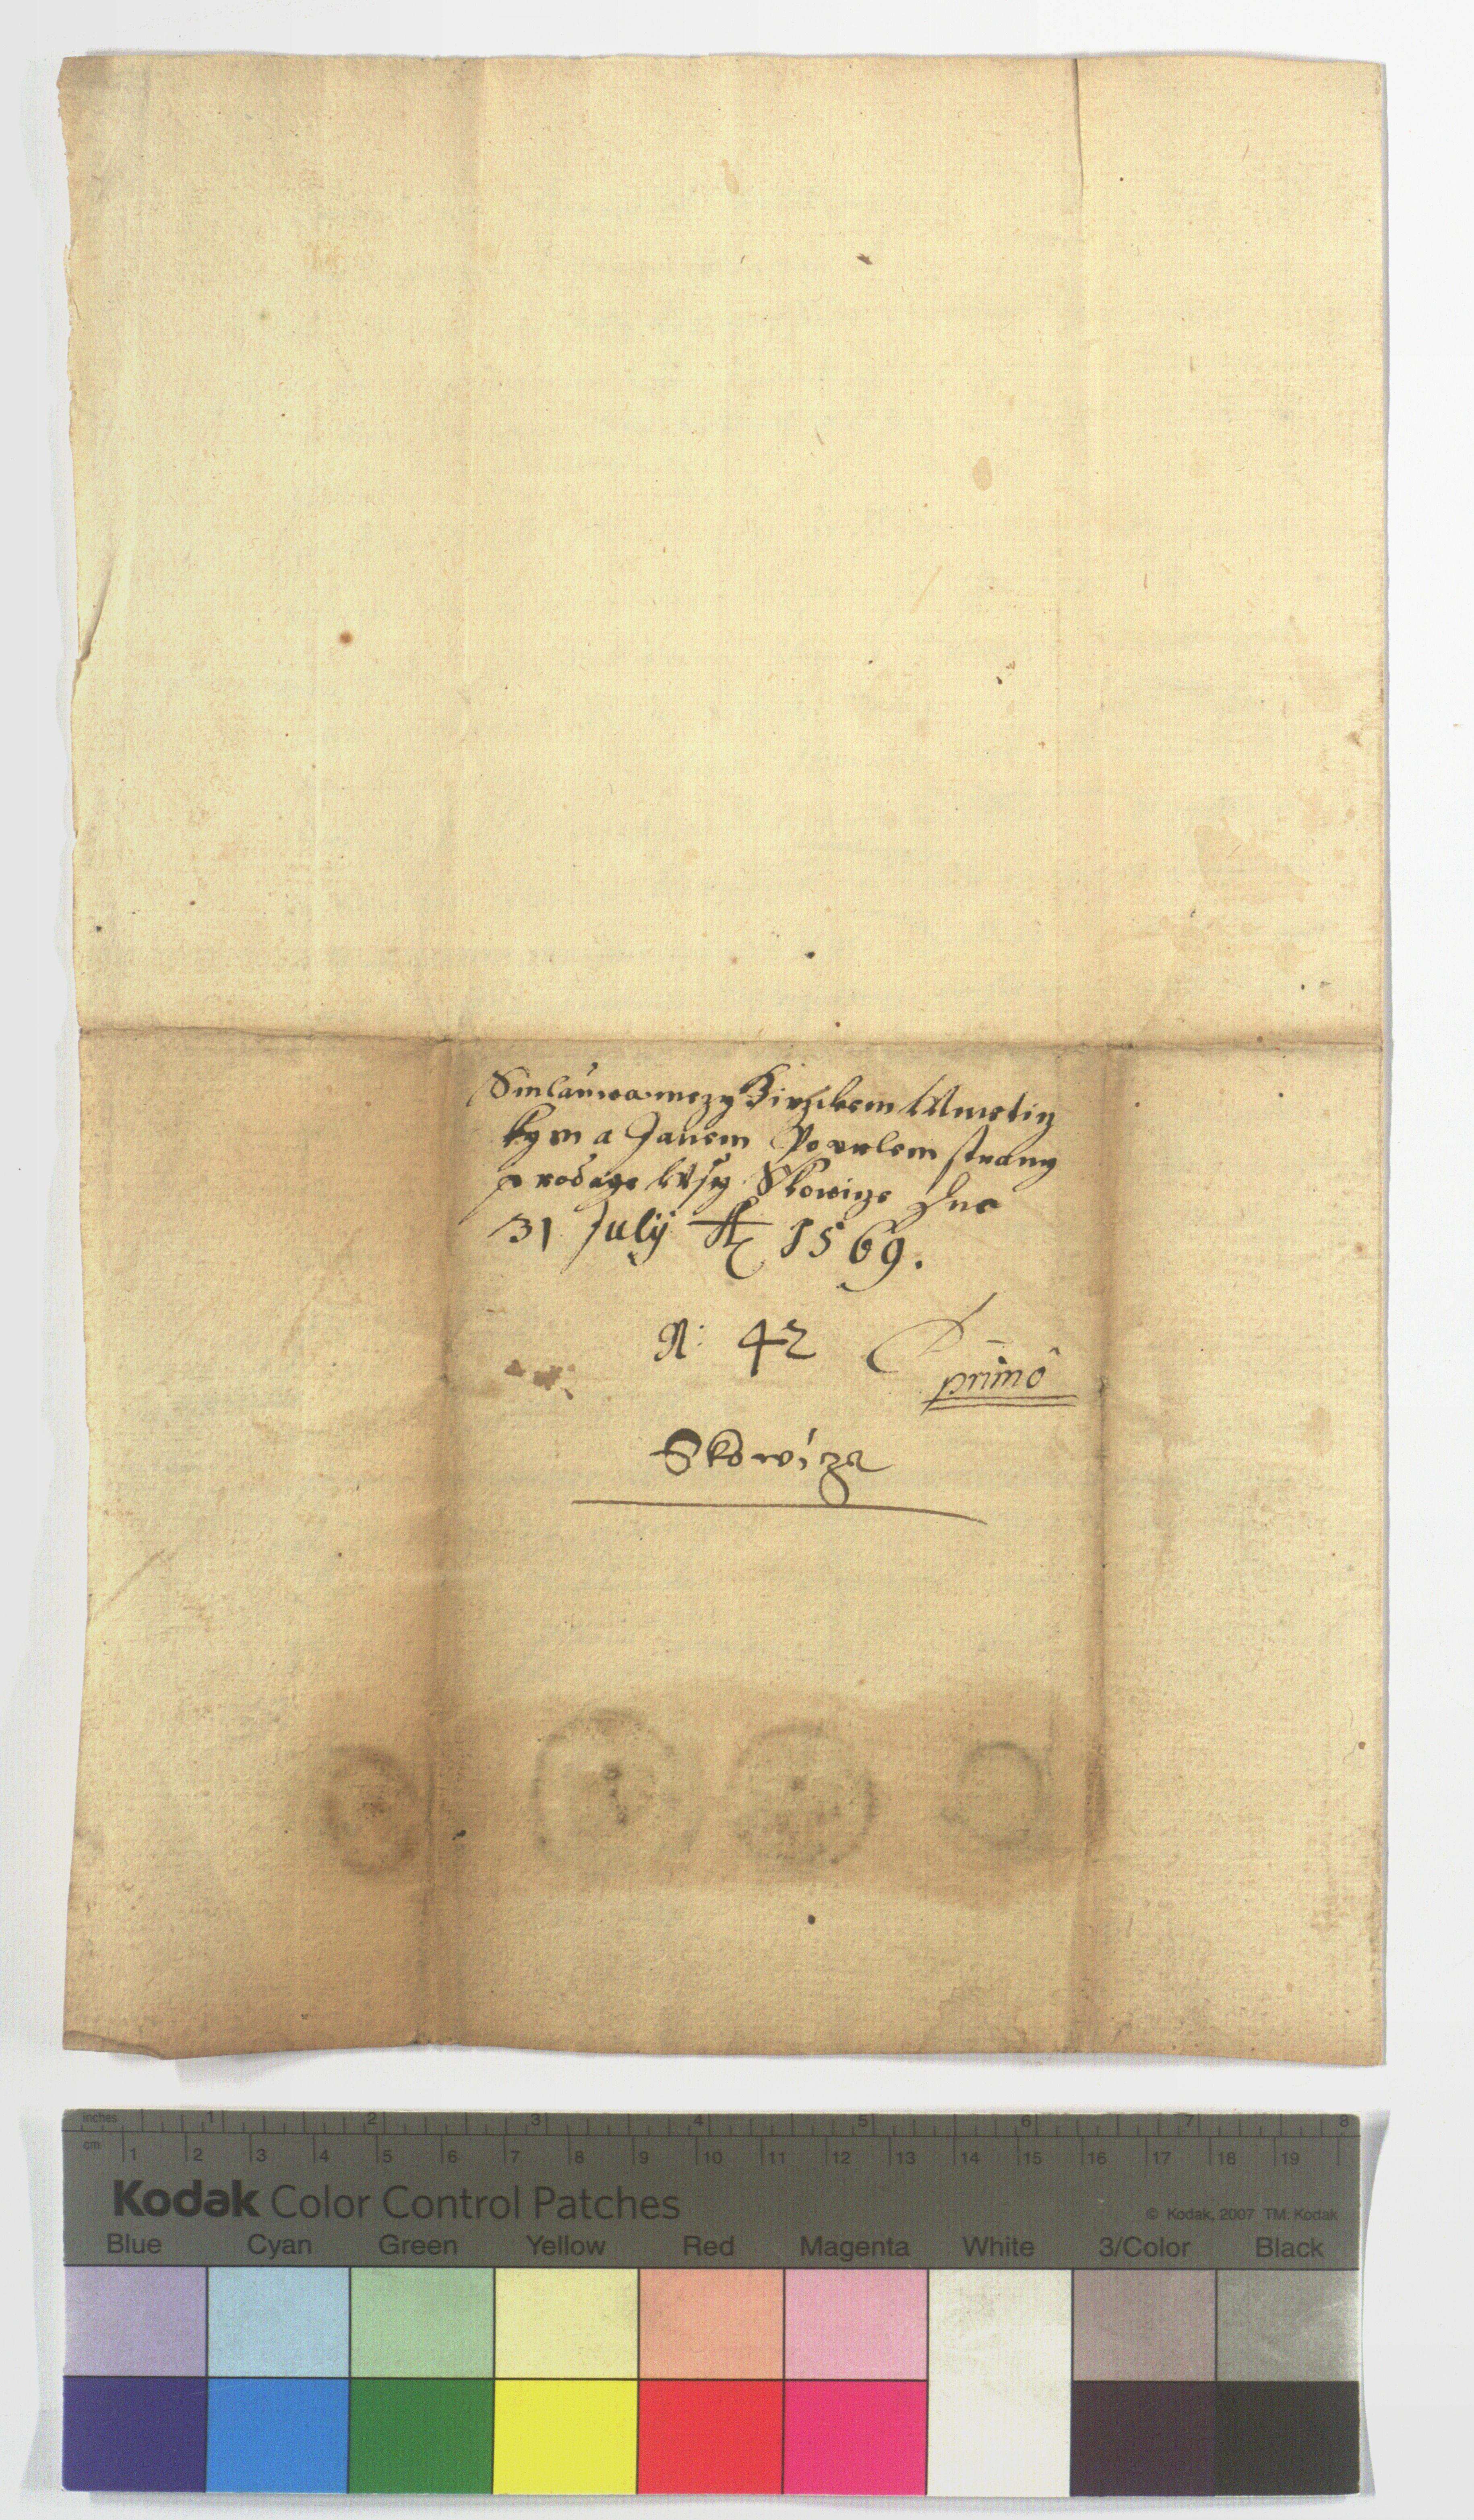 Smlauwa mezy Jirzikem Wmetiz
kym a Janem Poxulem strany
prodage Wsy Skowize dne
31 July A 1569.
N: 42
primo
Skowiza
inches 1 2 3 4 5 6 7 8
cm 1 2 3 4 5 6 7 8 9 10 11 12 13 14 15 16 17 18 19
Kodak Color Control Patches
© Kodak, 2007 TM: Kodak
Blue Cyan Green Yellow Red Magenta White 3/Color Black